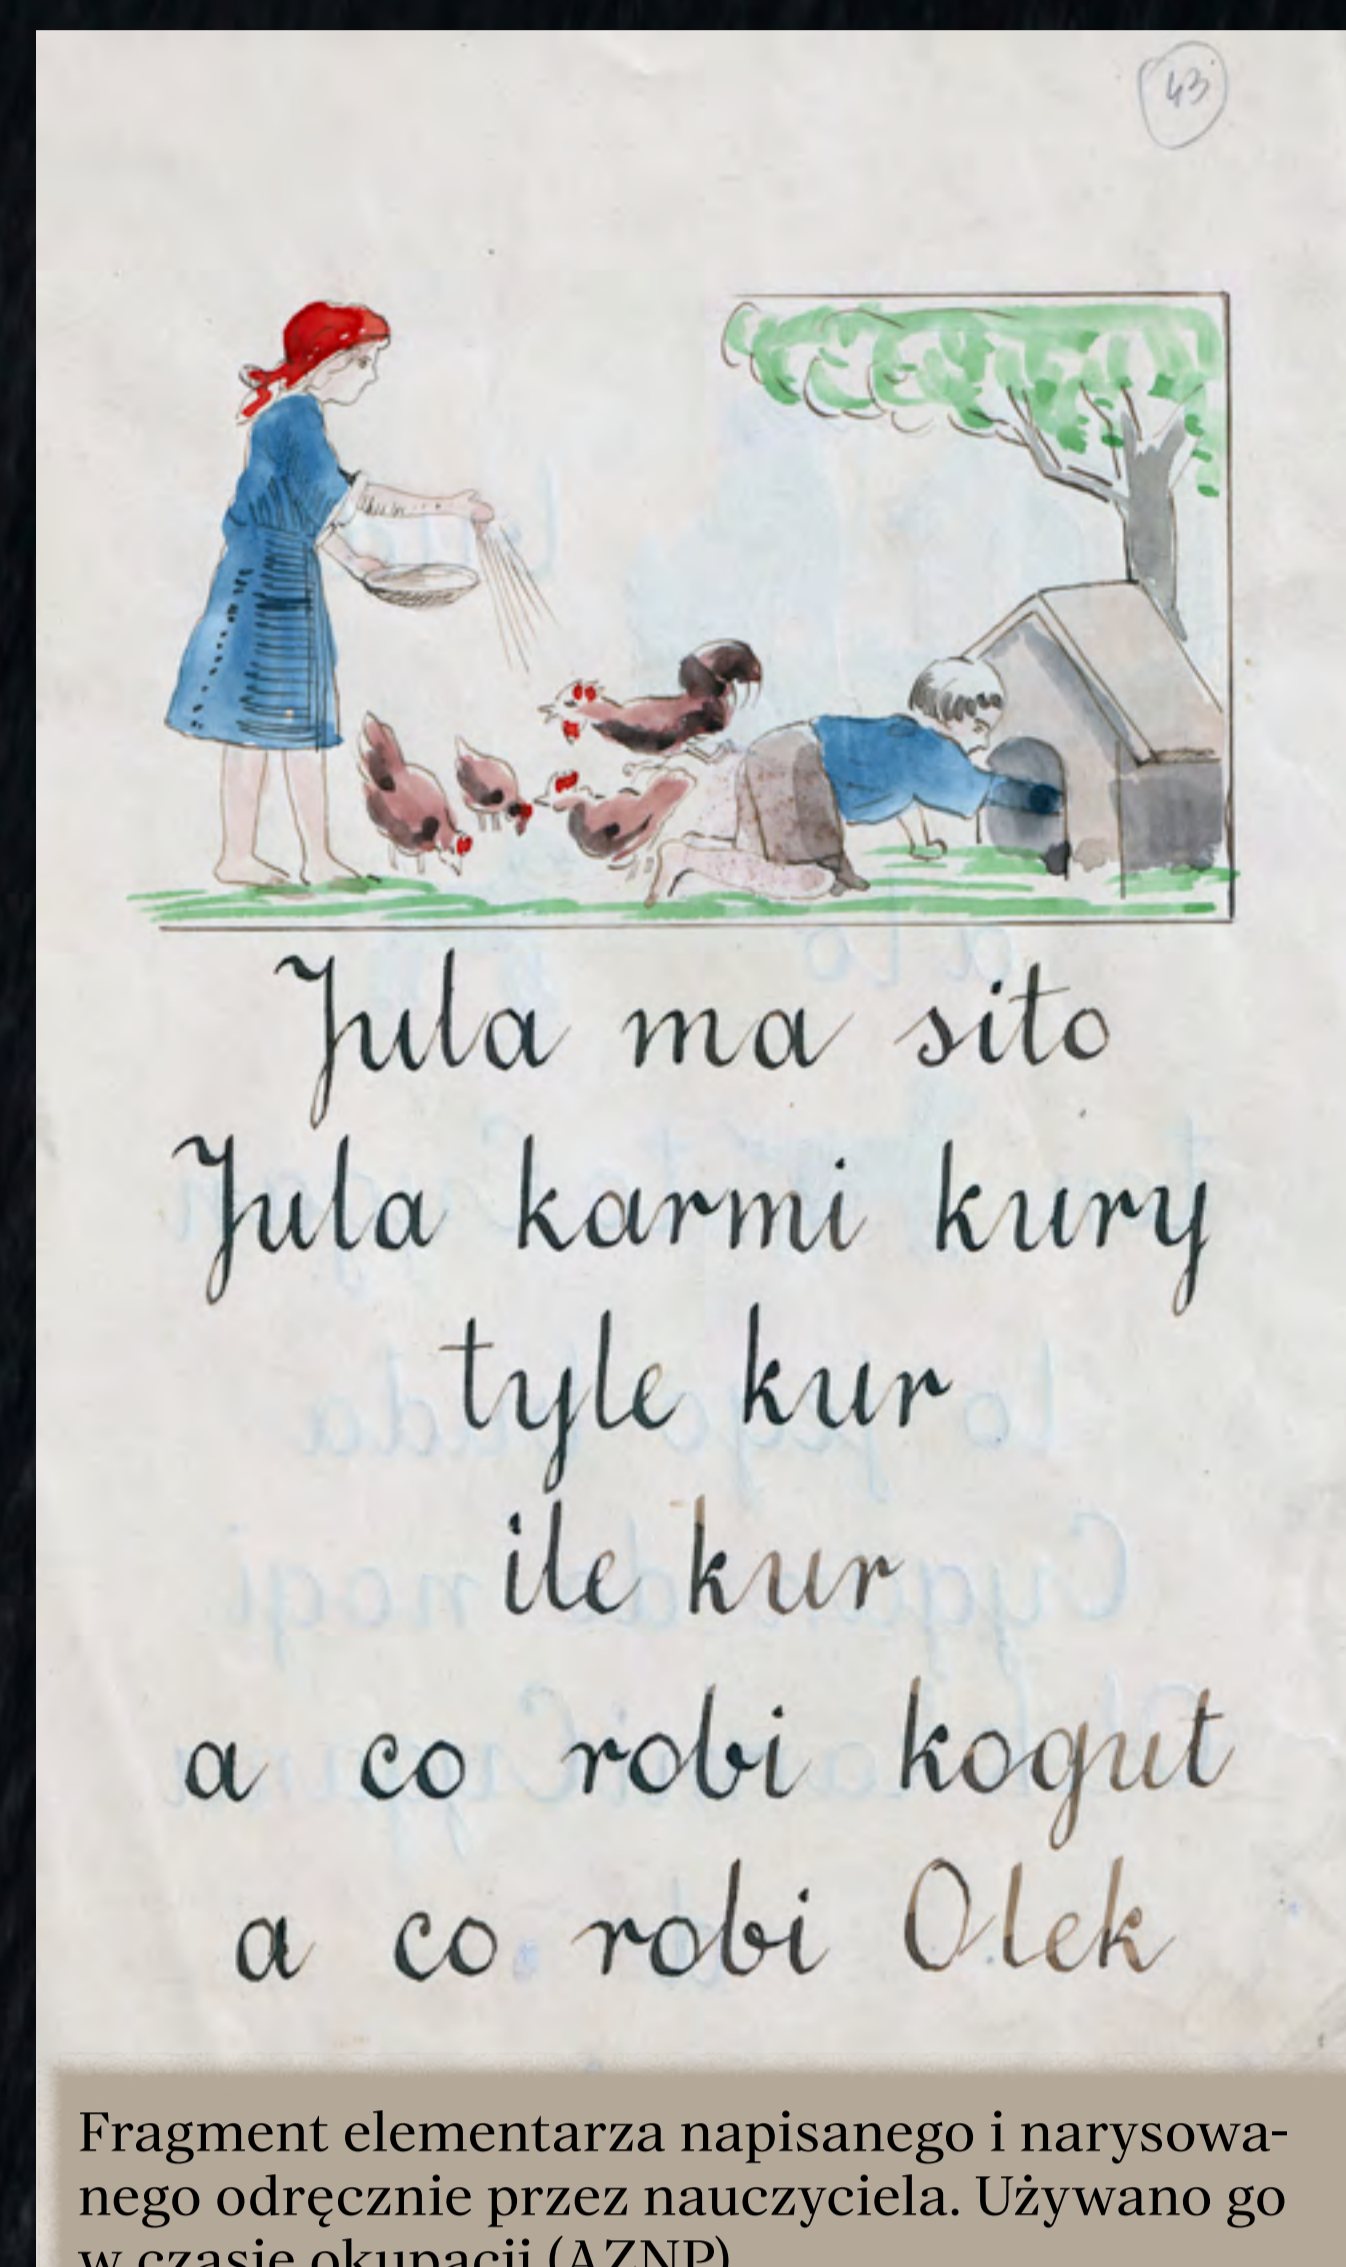 43
Jula ma sito
Jula karmi kury
tyle kur
ile kur
a co robi kogut
a co robi Olek
Fragment elementarza napisanego i narysowa-
nego odręcznie przez nauczyciela. Używano go
w czasie okupacji (AZNP)